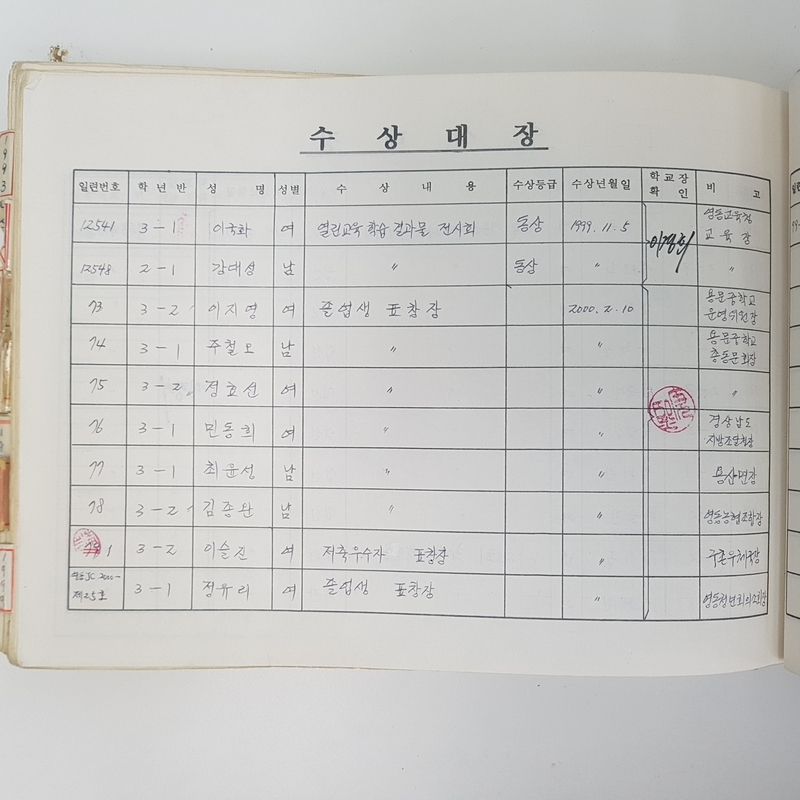 수 상 대 장
일련번호 학년반 성 명 성별 수 상 내 용 수상등급 수상년월일 학교장 확 인 비 고
12541 3-1 이국화 여 열린교육 학습 결과물 전시회 동상 1999. 11. 5 영동교육청 교육장
12548 2-1 강대성 남 〃 동상 〃 〃
73 3-2 이지영 여 졸업생 표창장 2000. 2. 10 용문중학교 운영위원장
74 3-1 주철모 남 〃 〃 용문중학교 총동문회장
75 3-2 정효선 여 〃 〃 〃
76 3-1 민동희 여 〃 〃 경상남도 지방조달청장
77 3-1 최윤성 남 〃 〃 용산면장
78 3-2 김종완 남 〃 〃 영동농협조합장
1 3-2 이슬진 여 저축우수자 표창장 〃 우체국장
영동JC 2000- 제25호 3-1 정유리 여 졸업생 표창장 〃 영동청년회의소회장